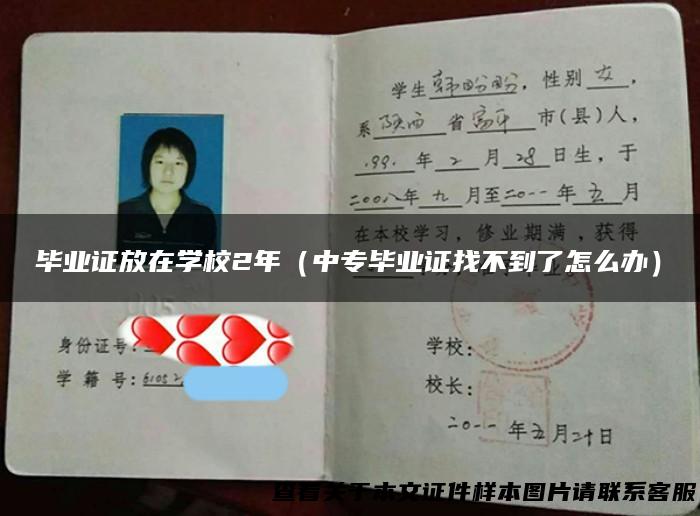 学生韩盼盼，性别女，
系陕西省富平市(县)人，
199.年2月28日生，于
二00八年九月至二0一一年五月
在本校学习，修业期满，获得
毕业证放在学校2年（中专毕业证找不到了怎么办）
身份证号:
学籍号:61052
学校:
校长:
二0一一年五月二十日
查看关于本文证件样本图片请联系客服